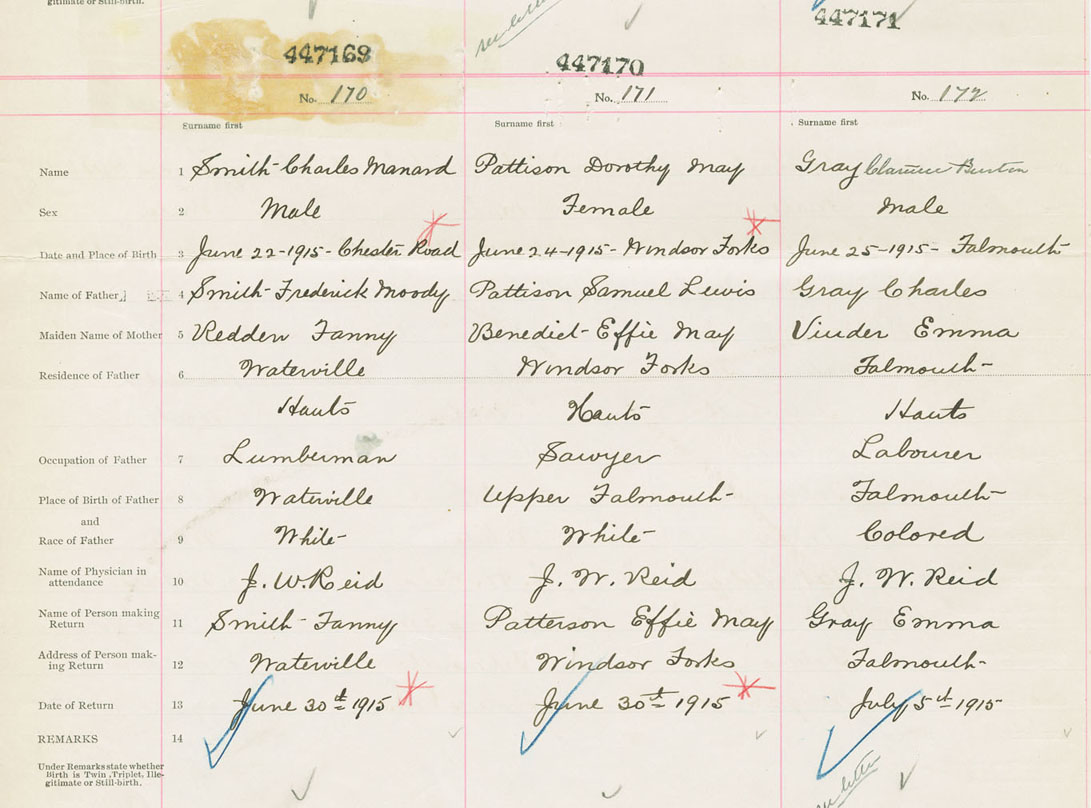 gitimate or Still-birth.
see letter
447169 447170 447171
No. 170 No. 171 No. 172
Surname first Surname first Surname first
Name 1 Smith Charles Manard Pattison Dorothy May Gray Clarence Burton
Sex 2 Male Female Male
Date and Place of Birth 3 June 22-1915- Chester Road June 24-1915- Windsor Forks June 25-1915- Falmouth
Name of Father 4 Smith Frederick Moody Pattison Samuel Lewis Gray Charles
Maiden Name of Mother 5 Redden Fanny Benedict Effie May Emma
Residence of Father 6 Waterville Windsor Forks Falmouth
Hants Hants Hants
Occupation of Father 7 Lumberman Sawyer Labourer
Place of Birth of Father 8 Waterville Upper Falmouth Falmouth
and
Race of Father 9 White White Colored
Name of Physician in
attendance 10 J. W. Reid J. W. Reid J. W. Reid
Name of Person making
Return 11 Smith Fanny Patterson Effie May Gray Emma
Address of Person mak-
ing Return 12 Waterville Windsor Forks Falmouth
Date of Return 13 June 30th 1915 June 30th 1915 July 5th 1915
REMARKS 14
Under Remarks state whether
Birth is Twin, Triplet, Ille-
gitimate or Still-birth.
see letter